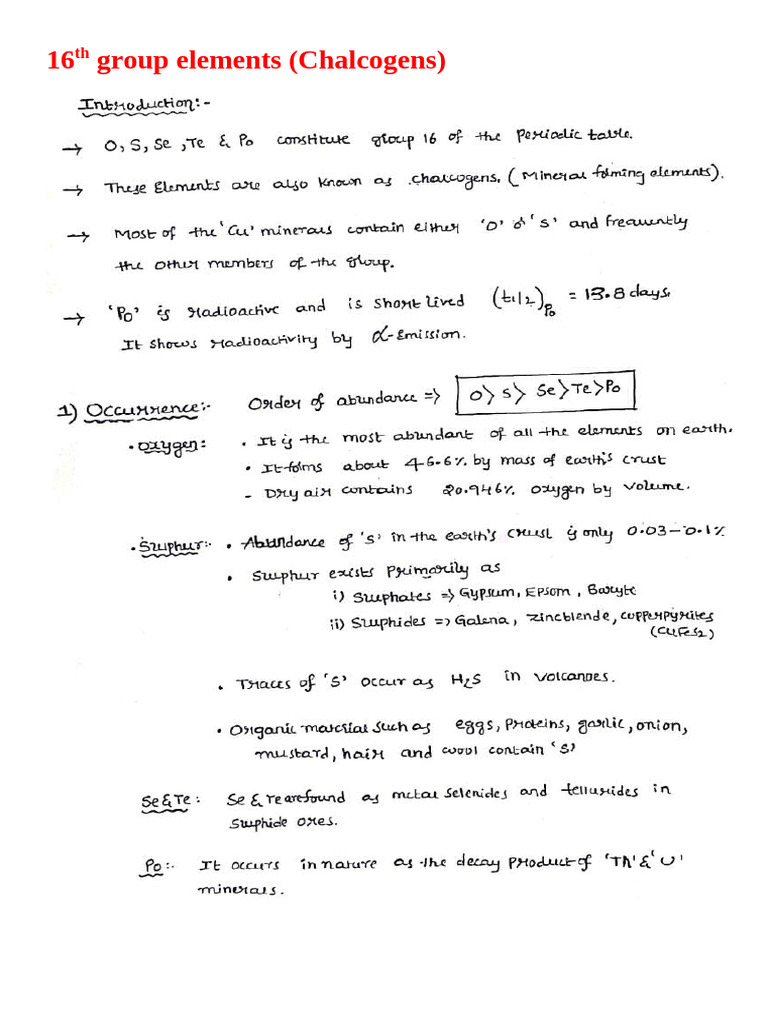 16th group elements (Chalcogens)
Introduction:-
→ O, S, Se, Te & Po constitute group 16 of the Periodic table.
→ These Elements are also known as chalcogens. (Mineral forming elements).
→ Most of the 'Cu' minerals contain either 'O' or 'S' and frequently
the other members of the group.
→ 'Po' is radioactive and is short lived (t1/2)Po = 13.8 days.
It shows radioactivity by α-Emission.
1) Occurrence:- Order of abundance => O > S > Se > Te > Po
• oxygen: • It is the most abundant of all the elements on earth.
• It forms about 46.6% by mass of earth's crust
- Dry air contains 20.946% oxygen by volume.
• Sulphur:- • Abundance of 'S' in the earth's crust is only 0.03-0.1%
• Sulphur exists primarily as
i) Sulphates => Gypsum, Epsom, Baryte
ii) Sulphides => Galena, zincblende, copperpyrites
(CuFeS2)
• Traces of 'S' occur as H2S in volcanoes.
• Organic material such as eggs, proteins, garlic, onion,
mustard, hair and wool contain 'S'
Se & Te: Se & Te are found as metal selenides and tellurides in
Sulphide ores.
Po:- It occurs in nature as the decay product of 'Th' & 'U'
minerals.